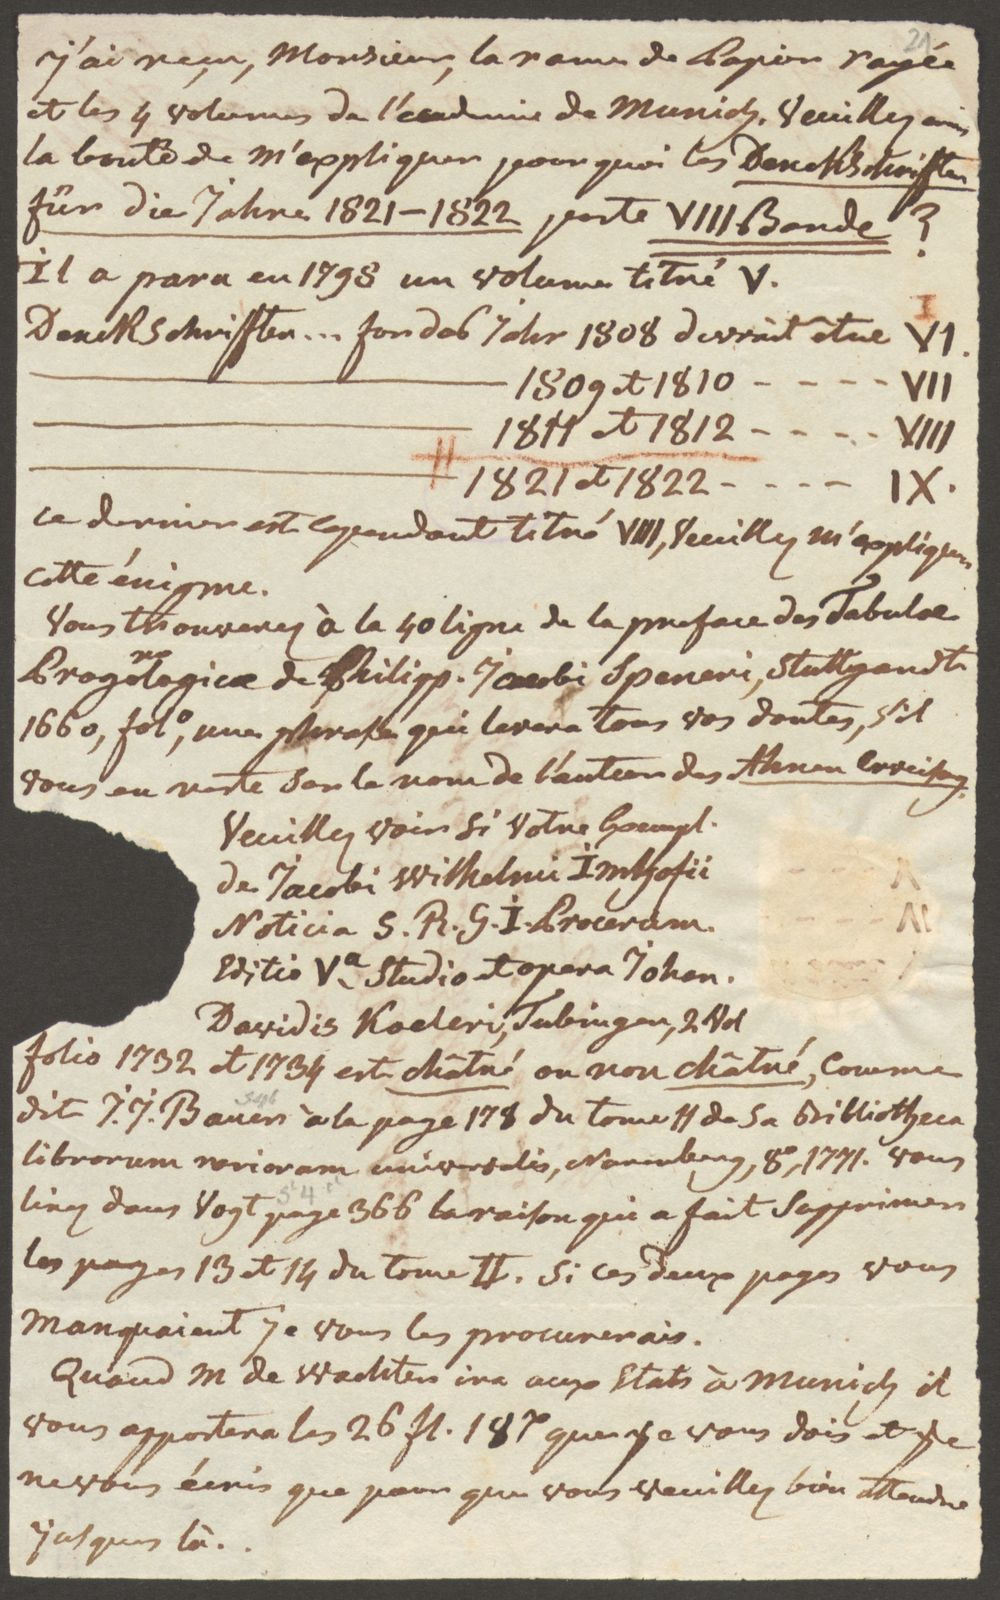 21
j'ai reçu, Monsieur, la rame de Papier rayée
et les 4 volumes de l'academie de Munich. Veuillez avoir
la bonté de m'expliquer pourquoi les Denckschrifften
für die Jahre 1821-1822 porte VIII Bande ?
Il a paru en 1798 un volume titré V.
Denckschrifften... for das Jahr 1808 devrait etre VI.
1809 et 1810 - - - - VII
1811 et 1812 - - - - VIII
1821 et 1822 - - - - IX.
ce dernier est cependant titré VIII, Veuillez m'expliquer
cette énigme.
Vous trouverez à la 40 ligne de la preface des Tabulae
Progonologicae de Philipp. Jacobi Speneri, Stuttgardt
1660, fol°, une phrase qui levera tous vos doutes, s'il
vous en reste sur le nom de l'auteur des Ahnen
Veuillez voir si votre Exempl.
de Jacobi Wilhelmi Imhofii
Noticia S. R. G. I. Procerum.
Editio Va Studio et opera Johan.
Davidis Koeleri, Tubingen, 2 Vol
folio 1732 et 1734 est châtré ou non châtré, comme
dit J. J. Bauer à la page 178 du tome II de sa Bibliotheca
librorum rariorum universalis, Nuremberg, 8°, 1771. vous
lirez dans Vogt page 366 la raison qui a fait supprimer
les pages 13 et 14 du tome II. Si ces deux pages vous
manquaient je vous les procurerais.
Quand M de Wachter ira aux Etats à Munich il
vous apportera les 26 fl. 18 que je vous dois et je
ne vous écris que pour que vous veuillez bien attendre
jusques là..